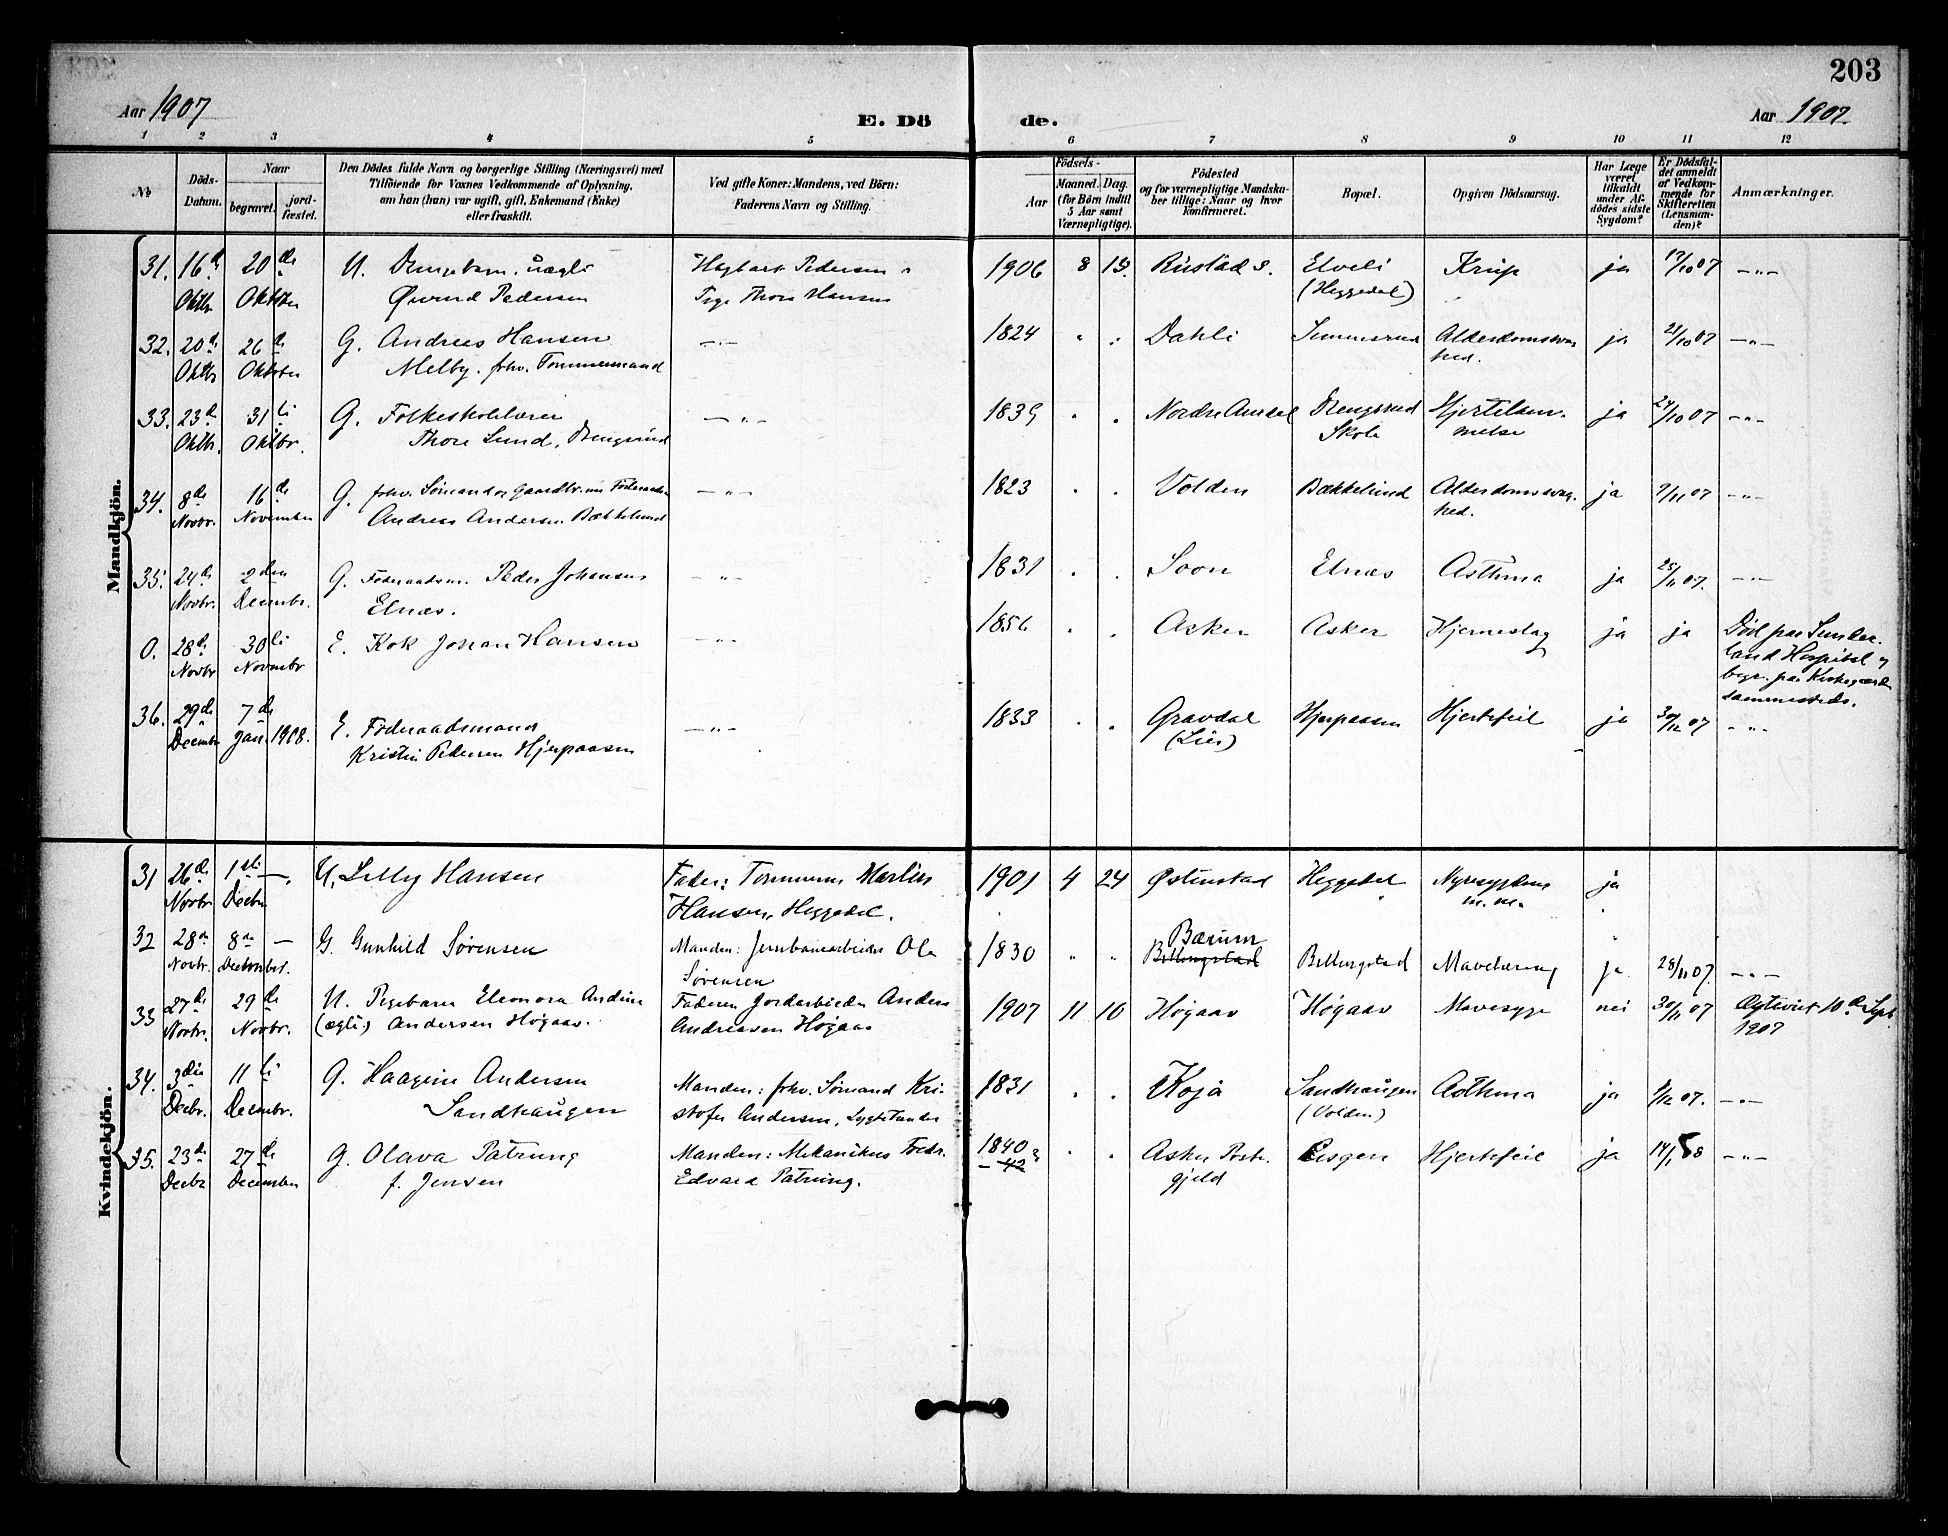 203
Aar 1907
E. Döde.
Aar 1907.
1 2 3 4 5 6 7 8 9 10 11 12
No
Döds-Datum.
Naar
begravet.
jordfæstet.
Den Dödes fulde Navn og borgerlige Stilling (Næringsvei) med
Tilföiende for Voxnes Vedkommende af Oplysning,
om han (hun) var ugift, gift, Enkemand (Enke)
eller fraskilt.
Ved gifte Koner: Mandens, ved Börn:
Faderens Navn og Stilling.
Födsels-
Aar
Maaned. Dag.
(for Börn indtil
5 Aar samt
Værnepligtige).
Födested
og for værnepligtige Mandska-
ber tillige: Naar og hvor
konfirmeret.
Bopæl.
Opgiven Dödsaarsag.
Har Læge
været
tilkaldt
under Af-
dödes sidste
Sygdom?
Er Dödsfal-
det anmeldt
af Vedkom-
mende for
Skifteretten
(Lensman-
den)?
Anmærkninger.
Mandkjön.
31. 16de Oktbr 20de Oktober U. Drengebarn. uægte Hagbart Pedersen
Øivind Pedersen Thora Hansen
1906 8 Rustad s. Elveli Krup ja 17/10 07 —"—
(Heggedal)
32. 20de Oktbr 26de Oktober G. Andreas Hansen —"—
Melby. frhv. Tømmermand
1824 " " Dahli Alderdomssvag- ja 21/10 07 —"—
hed.
33. 23de Oktbr. 31te Oktbr. G. Folkeskolelærer —"—
Thore Lund, Drengsrud
1839 " " Nordre Aursdal Drengsrud Hjertelam- ja 24/10 07 —"—
Skole melse
34. 8de Novbr. 16de November G. frhv. Sømand og Gaardbr. nu Föderaadsm.
Andreas Andersen Bækkelund —"—
1823 " " Volden Bækkelund Alderdomssvag- ja 9/11 07 —"—
hed.
35. 24de Novbr. 2den Decembr. G. Föderaadsm. Peder Johansen —"—
Elnæs.
1831 " " Soon Elnæs Asthma ja 25/11 07. —"—
0. 28de Novbr 30te Novembr E. Kok Johan Hansen —"—
1856 " " Asker Asker Hjerneslag ja ja Död paa Sunder-
land Hospital og
begr. paa Kirkegaarden
sammesteds.
36. 29de Decembr 7de Jan. 1908. E. Föderaadsmand —"—
Kristin Pedersen Hjerpaasen
1833 " " Gravdal Hjerpaasen Hjertefeil ja 30/12 07 —"—
(Lier)
Kvindekjön.
31 26de Novbr 1ste Decbr — U. Lilly Hansen Fader: Tømmerm. Martin
Hansen, Heggedal.
1901 4 24 Østenstad Heggedal Nyresygdom ja
m. m.
32 28de Novbr. 8de Decembr. — G. Gunhild Sørensen Manden: Jernbanearbeider Ole
Sørensen
1830 " " Bærum Billingstad Mavetæring ja 28/11 07. —"—
Billingstad
33 27de Novbr. 29de Novbr. U. Pigebarn Eleonora Andrine Faderen Jordarbeider Anders
(ægte) Andersen Högaas. Andreassen Högaas
1907 11 10 Högaas Högaas Mavesyge nei 30/11 07 Ægteviet 10de Sept.
1907
34. 3die Decbr. 11te Decembr. G. Haagine Andersen Manden: frhv. Sømand Kri-
Sandhaugen stofer Andersen,
1831 " " Koja Sandhaugen Asthma ja /12 07. —"—
(Volden)
35. 23de Decbr 27de December G. Olava Patrung Manden: Mekanikus Fredr.
f. Jensen Edvard Patrung.
1840 " " Asker Præste- Hjertefeil ja —"—
— 42 gjeld